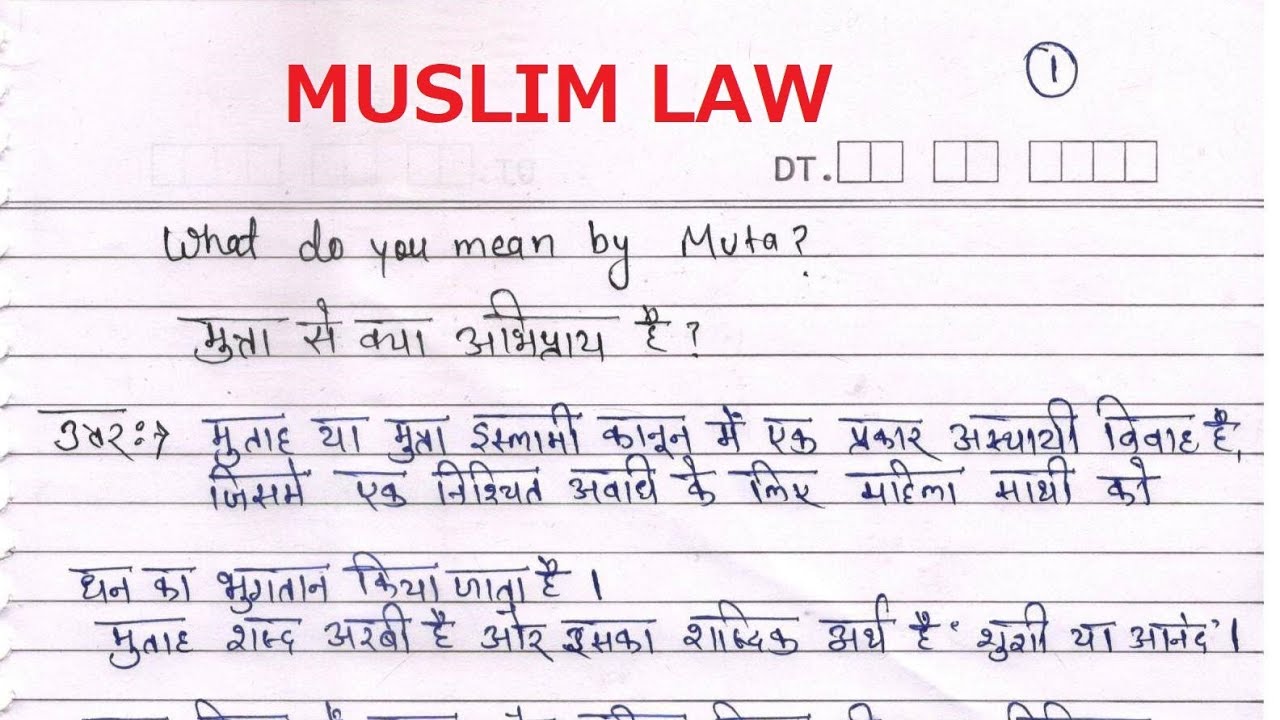 MUSLIM LAW
1
DT.
What do you mean by Muta?
मुत्ता से क्या अभिप्राय है ?
उत्तर:→ मुताह या मुत्ता इस्लामी कानून में एक प्रकार अस्थायी विवाह है,
जिसमे एक निश्चित अवधि के लिए महिला साथी को
धन का भुगतान किया जाता है ।
मुताह शब्द अरबी है और इसका शाब्दिक अर्थ है 'खुशी या आनंद' ।